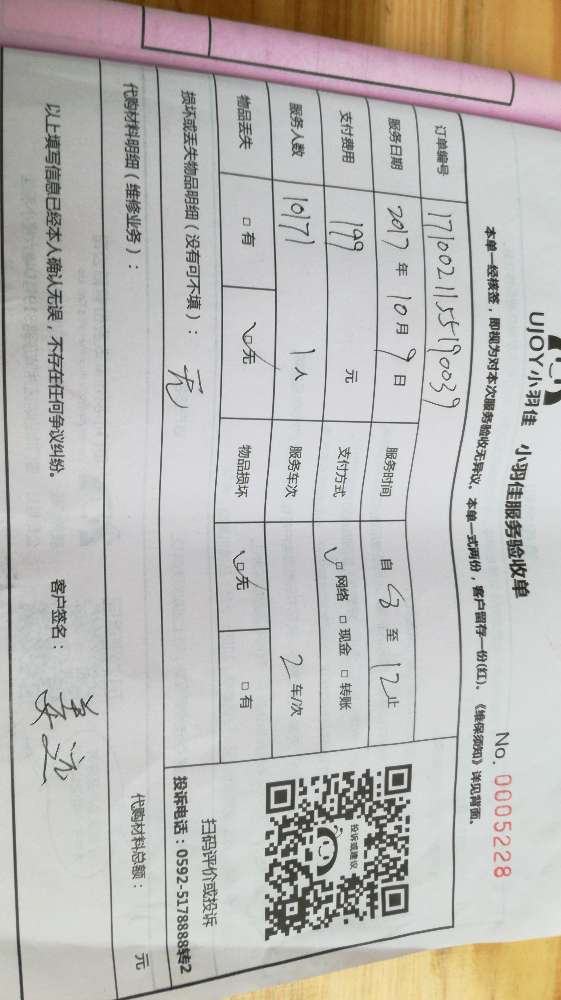 UJOY小羽佳 小羽佳服务验收单 No. 0005228
本单一经核签，即视为对本次服务验收无异议。本单一式两份，客户留存一份(红)。《维保须知》详见背面。
订单编号 1710021155190039
服务日期 2017年10月9日 服务时间 自 8 至 12 止
支付费用 199 元 支付方式 ☑网络 □现金 □转账
服务人数 10171 1人 服务车次 2车/次
物品丢失 □有 ☑无 物品损坏 ☑无 □有
损坏或丢失物品明细（没有可不填）： 无
投诉或建议
扫码评价或投诉
投诉电话：0592-5178888转2
代购材料明细（维修业务）： 代购材料总额： 元
以上填写信息已经本人确认无误，不存在任何争议纠纷。 客户签名：